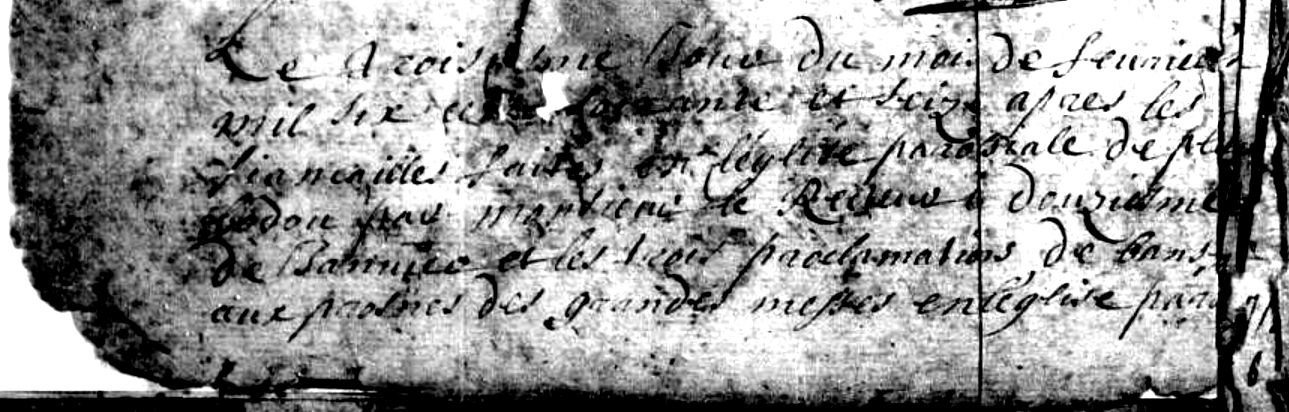 Le troisiesme Jour du mois de feurier
mil six cent soixante et seize apres les
fiancailles faites en l'eglise paroissiale de pleu
bodou par monsieur le Recteur le douziesme
de Januier et les trois proclamations de bans
aux prosnes des grandes messes en l'eglise paro